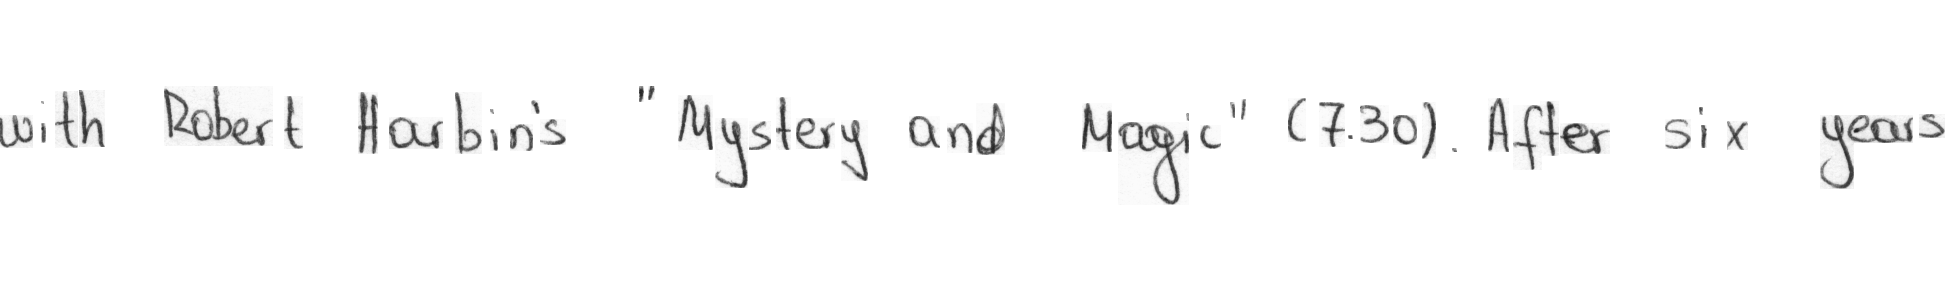 with Robert Harbin's "Mystery and Magic" (7.30). After six years